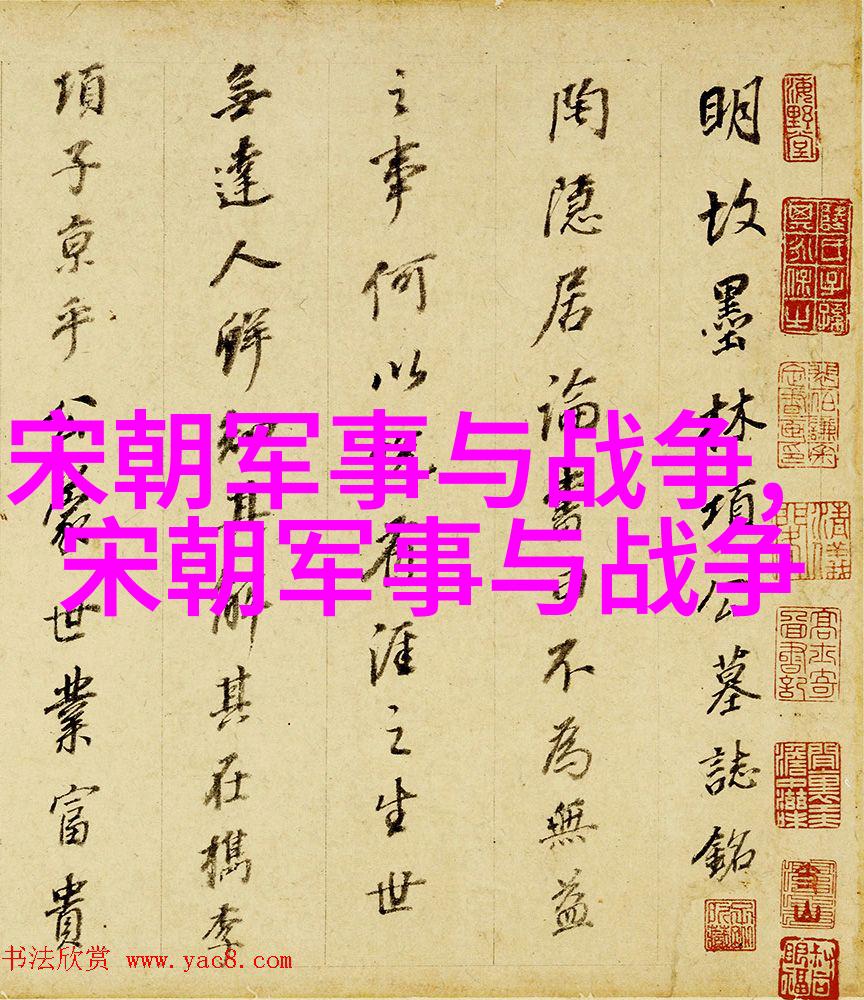 明故墨林項公墓誌銘
陶隱居論書曰不為無益
之事何以悅有涯之生世
無達人鮮知其解其在檇李
項子京乎公裔世業富貴
宋朝军事与战争,
宋朝军事与战争
海野堂
书法欣赏 www.yac8.com